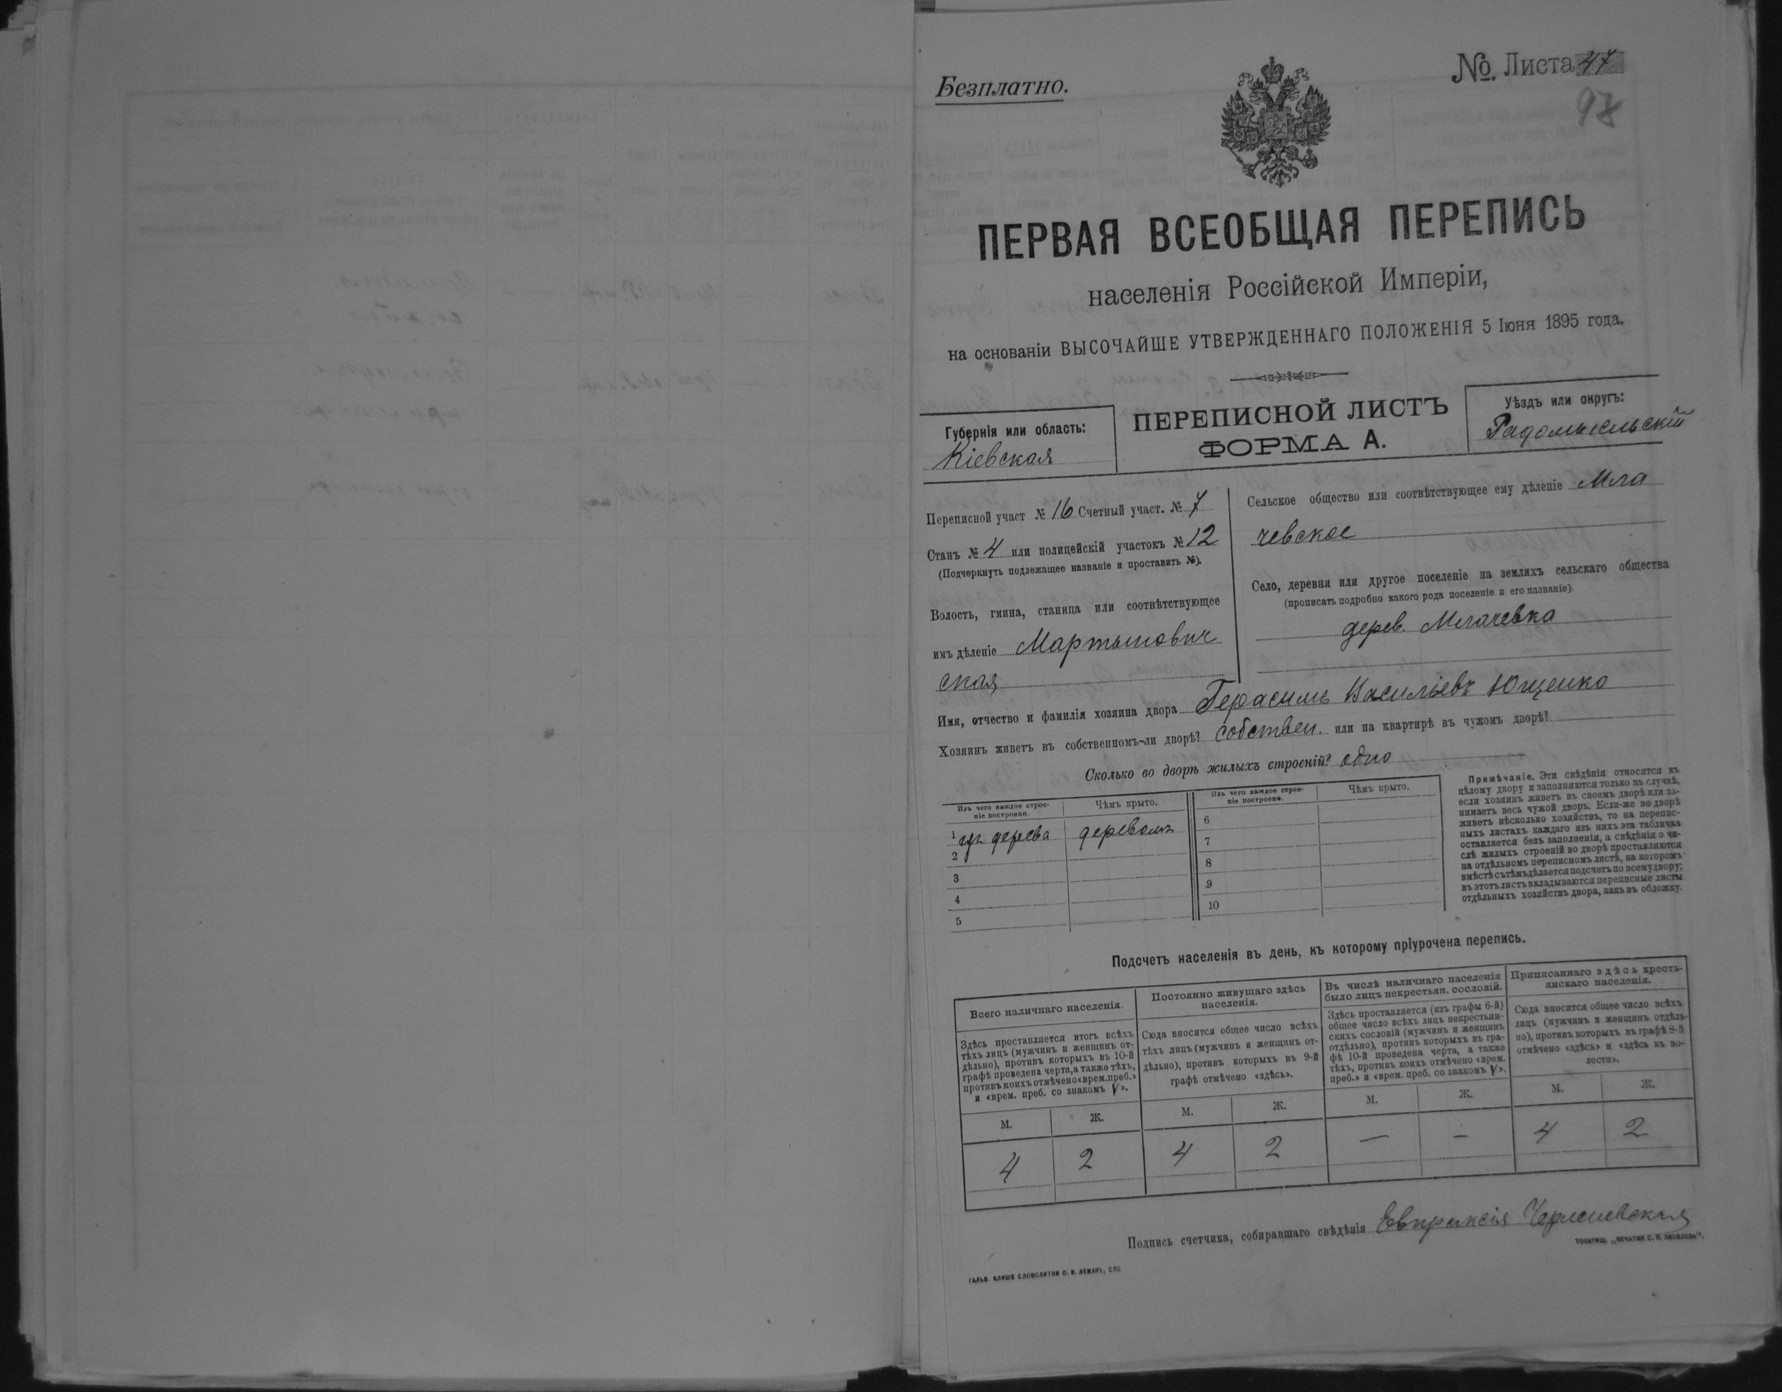 Безплатно.
№. Листа 47
98
ПЕРВАЯ ВСЕОБЩАЯ ПЕРЕПИСЬ
населенія Россійской Имперіи,
на основаніи ВЫСОЧАЙШЕ УТВЕРЖДЕННАГО ПОЛОЖЕНІЯ 5 Іюня 1895 года.
Губернія или область:
Кіевская
ПЕРЕПИСНОЙ ЛИСТЪ
ФОРМА А.
Уѣздъ или округъ:
Радомысльскій
Переписной участ № 16 Счетный участ. № 7
Станъ № 4 или полицейскій участокъ № 12
(Подчеркнуть подлежащее названіе и проставить №).
Волость, гмина, станица или соотвѣтствующее
имъ дѣленіе Мартынович
ская
Сельское общество или соотвѣтствующее ему дѣленіе Мла
чевское
Село, деревня или другое поселеніе на земляхъ сельскаго общества
(прописать подробно какого рода поселеніе и его названіе).
дерев. Млачевка
Имя, отчество и фамилія хозяина двора Герасимъ Васильевъ Ющенко
Хозяинъ живетъ въ собственномъ-ли дворѣ? собствен. или на квартирѣ въ чужомъ дворѣ?
Сколько во дворѣ жилыхъ строеній? одно
Изъ чего каждое строе-
ніе построено.
Чѣмъ крыто.
Изъ чего каждое строе-
ніе построено.
Чѣмъ крыто.
1 изъ дерева деревомъ
2
3
4
5
6
7
8
9
10
Примѣчаніе. Эти свѣдѣнія относятся къ
цѣлому двору и заполняются только въ случаѣ,
если хозяинъ живетъ въ своемъ дворѣ или за-
нимаетъ весь чужой дворъ. Если-же во дворѣ
живетъ нѣсколько хозяйствъ, то на перепис-
ныхъ листахъ каждаго изъ нихъ эта табличка
оставляется безъ заполненія, а свѣдѣнія о чи-
слѣ жилыхъ строеній во дворѣ проставляются
на отдѣльномъ переписномъ листѣ, на которомъ
вмѣстѣ съ тѣмъ дѣлается подсчетъ по всему двору;
въ этотъ листъ вкладываются переписные листы
отдѣльныхъ хозяйствъ двора, какъ въ обложку.
Подсчетъ населенія въ день, къ которому пріурочена перепись.
Всего наличнаго населенія.
Здѣсь проставляется итогъ всѣхъ
тѣхъ лицъ (мужчинъ и женщинъ от-
дѣльно), противъ которыхъ въ 10-й
графѣ проведена черта, а также тѣхъ,
противъ коихъ отмѣчено «врем. преб.»
и «врем. преб. со знакомъ V».
Постоянно живущаго здѣсь
населенія.
Сюда вносится общее число всѣхъ
тѣхъ лицъ (мужчинъ и женщинъ от-
дѣльно), противъ которыхъ въ 9-й
графѣ отмѣчено «здѣсь».
Въ числѣ наличнаго населенія
было лицъ некрестьян. сословій.
Здѣсь проставляется (изъ графы 6-й)
общее число всѣхъ лицъ некрестьян-
скихъ сословій (мужчинъ и женщинъ
отдѣльно), противъ которыхъ въ гра-
фѣ 10-й проведена черта, а также
тѣхъ, противъ коихъ отмѣчено «врем.
преб.» и «врем. преб. со знакомъ V».
Приписаннаго здѣсь кресть-
янскаго населенія.
Сюда вносится общее число всѣхъ
лицъ (мужчинъ и женщинъ отдѣль-
но), противъ которыхъ въ графѣ 8-й
отмѣчено «здѣсь» и «здѣсь въ во-
лости».
М. Ж. М. Ж. М. Ж. М. Ж.
4 2 4 2 — — 4 2
Подпись счетчика, собиравшаго свѣдѣнія Евпраксія
ГАЛЬВ. КЛИШЕ СЛОВОЛИТНИ О. И. ЛЕМАНЪ, СПБ
ТОВАРИЩ. „ПЕЧАТНЯ С. П. ЯКОВЛЕВА".